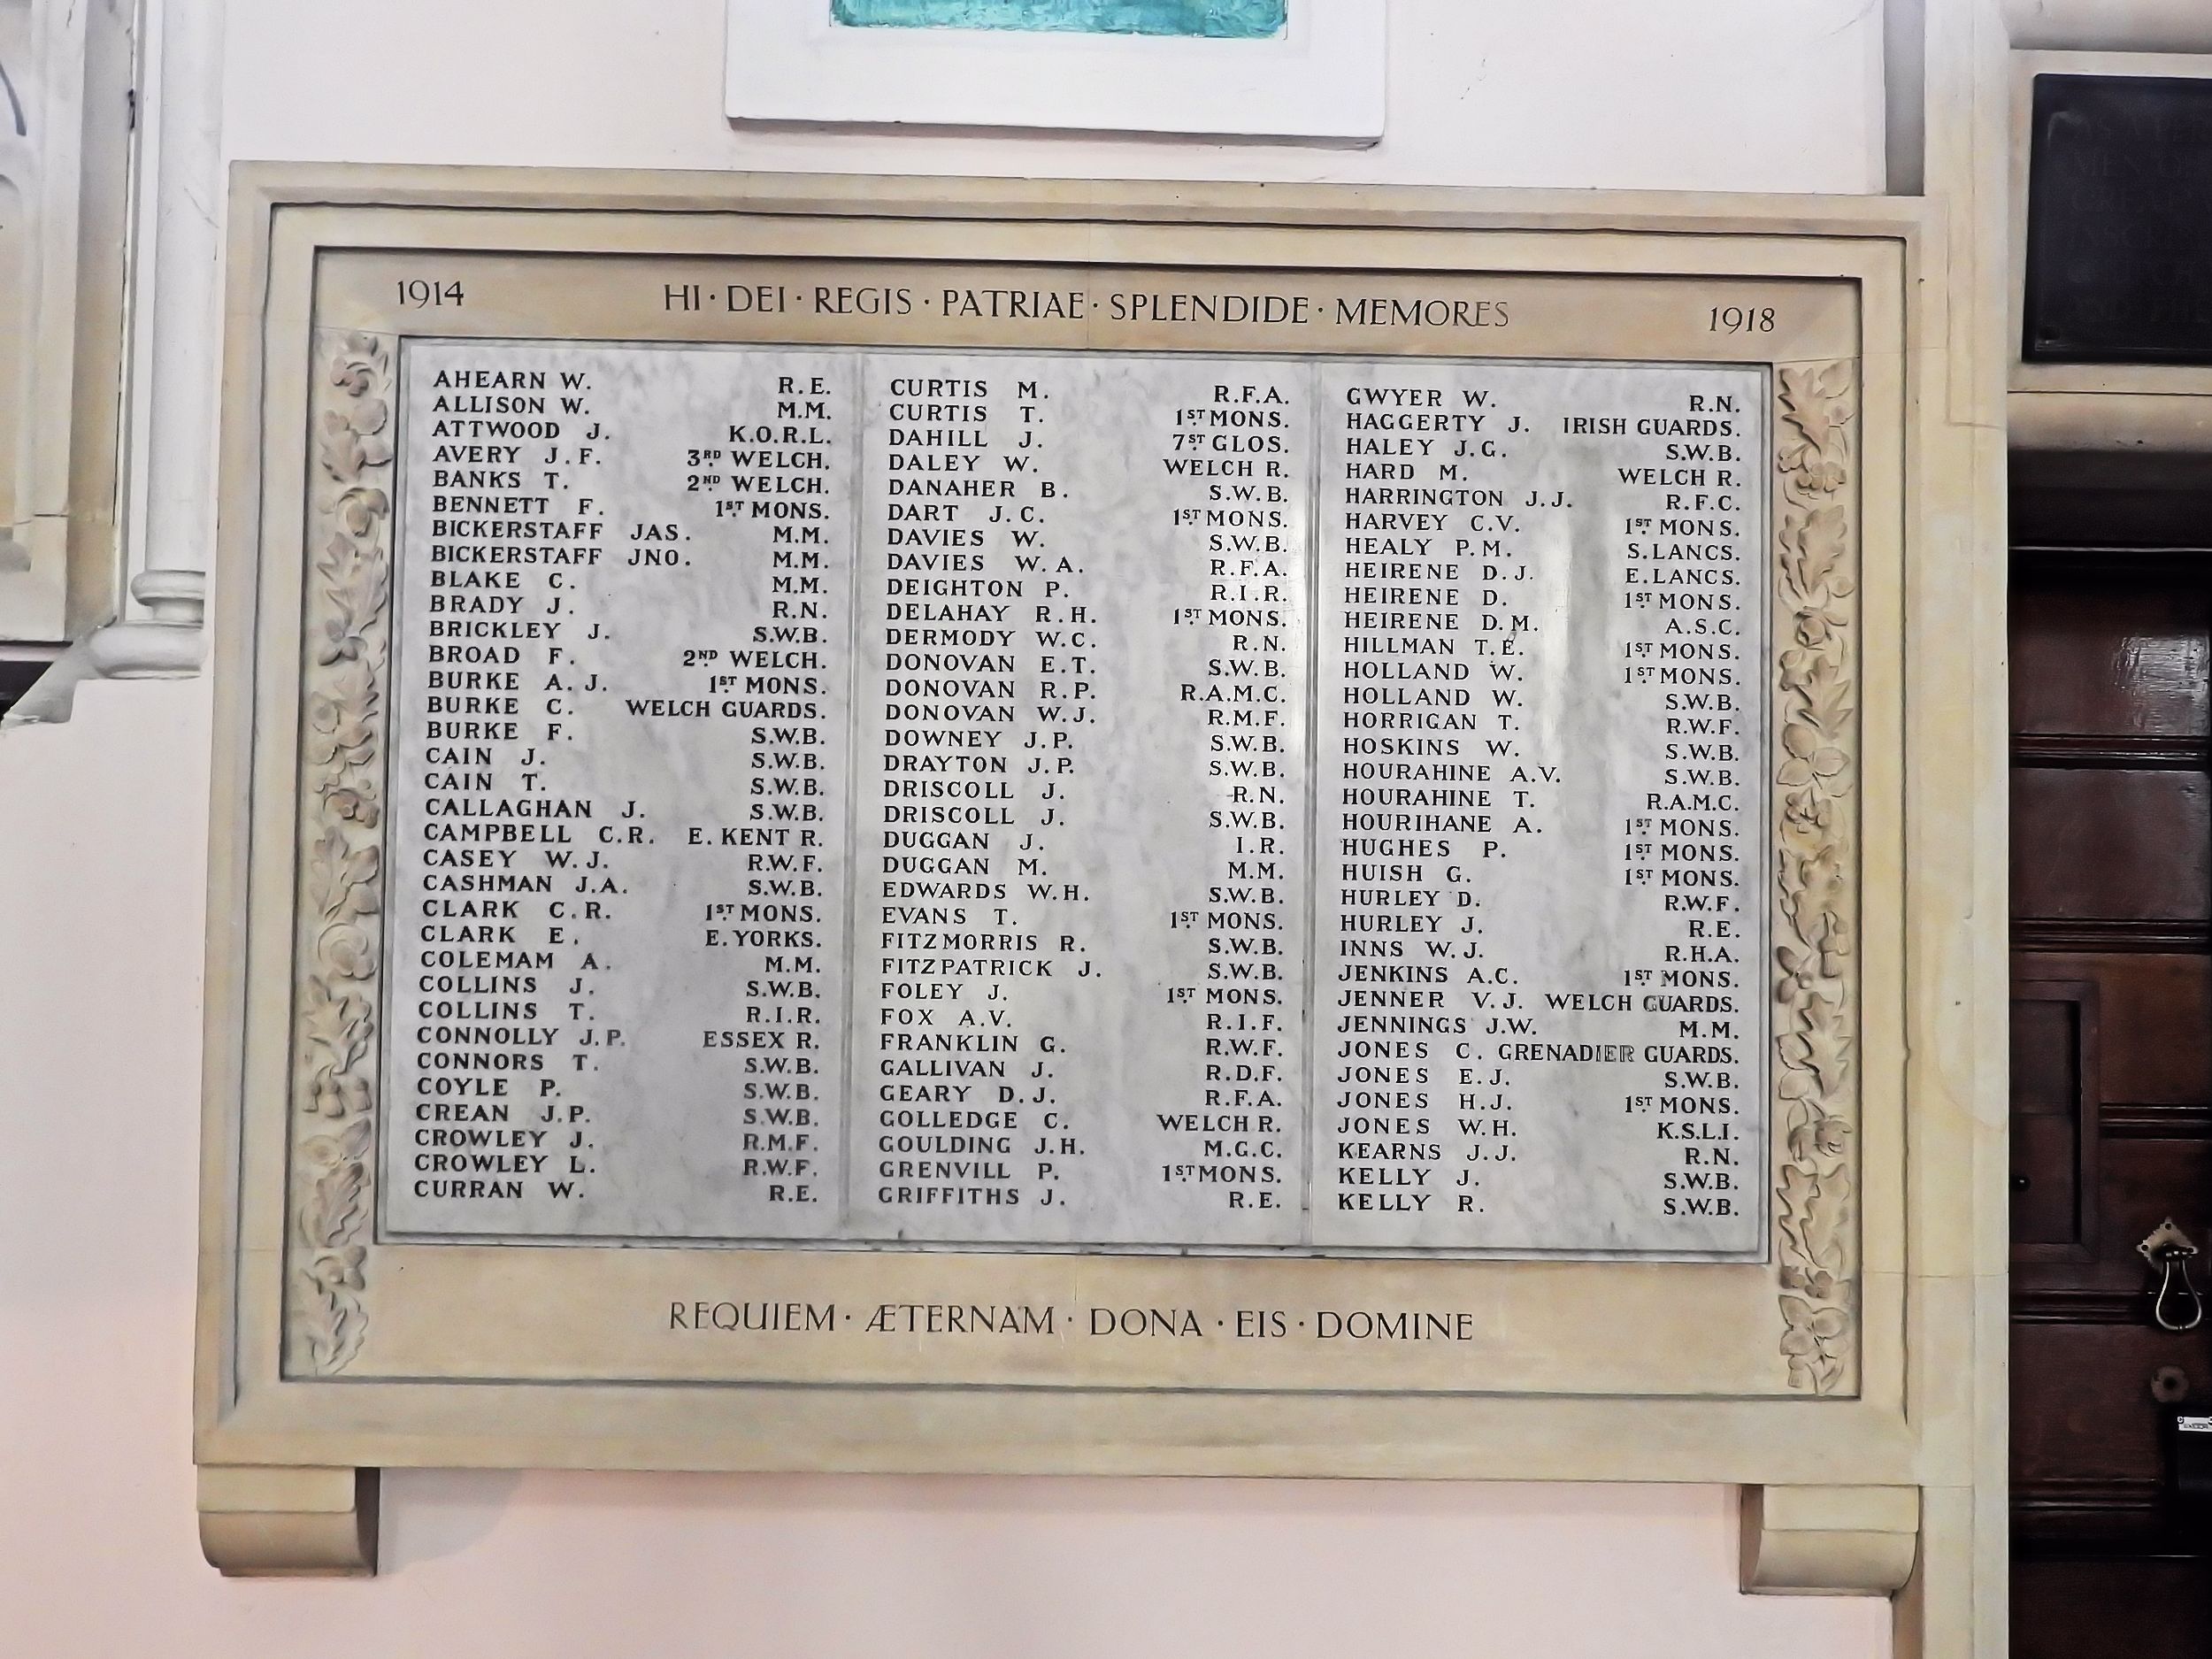 1914 HI · DEI · REGIS · PATRIAE · SPLENDIDE · MEMORES 1918
AHEARN W. R.E.
ALLISON W. M.M.
ATTWOOD J. K.O.R.L.
AVERY J.F. 3RD WELCH.
BANKS T. 2ND WELCH.
BENNETT F. 1ST MONS.
BICKERSTAFF JAS. M.M.
BICKERSTAFF JNO. M.M.
BLAKE C. M.M.
BRADY J. R.N.
BRICKLEY J. S.W.B.
BROAD F. 2ND WELCH.
BURKE A.J. 1ST MONS.
BURKE C. WELCH GUARDS.
BURKE F. S.W.B.
CAIN J. S.W.B.
CAIN T. S.W.B.
CALLAGHAN J. S.W.B.
CAMPBELL C.R. E. KENT R.
CASEY W.J. R.W.F.
CASHMAN J.A. S.W.B.
CLARK C.R. 1ST MONS.
CLARK E. E. YORKS.
COLEMAM A. M.M.
COLLINS J. S.W.B.
COLLINS T. R.I.R.
CONNOLLY J.P. ESSEX R.
CONNORS T. S.W.B.
COYLE P. S.W.B.
CREAN J.P. S.W.B.
CROWLEY J. R.M.F.
CROWLEY L. R.W.F.
CURRAN W. R.E.
CURTIS M. R.F.A.
CURTIS T. 1ST MONS.
DAHILL J. 7ST GLOS.
DALEY W. WELCH R.
DANAHER B. S.W.B.
DART J.C. 1ST MONS.
DAVIES W. S.W.B.
DAVIES W.A. R.F.A.
DEIGHTON P. R.I.R.
DELAHAY R.H. 1ST MONS.
DERMODY W.C. R.N.
DONOVAN E.T. S.W.B.
DONOVAN R.P. R.A.M.C.
DONOVAN W.J. R.M.F.
DOWNEY J.P. S.W.B.
DRAYTON J.P. S.W.B.
DRISCOLL J. R.N.
DRISCOLL J. S.W.B.
DUGGAN J. I.R.
DUGGAN M. M.M.
EDWARDS W.H. S.W.B.
EVANS T. 1ST MONS.
FITZMORRIS R. S.W.B.
FITZPATRICK J. S.W.B.
FOLEY J. 1ST MONS.
FOX A.V. R.I.F.
FRANKLIN G. R.W.F.
GALLIVAN J. R.D.F.
GEARY D.J. R.F.A.
GOLLEDGE C. WELCH R.
GOULDING J.H. M.G.C.
GRENVILL P. 1ST MONS.
GRIFFITHS J. R.E.
GWYER W. R.N.
HAGGERTY J. IRISH GUARDS.
HALEY J.G. S.W.B.
HARD M. WELCH R.
HARRINGTON J.J. R.F.C.
HARVEY C.V. 1ST MONS.
HEALY P.M. S. LANCS.
HEIRENE D.J. E. LANCS.
HEIRENE D. 1ST MONS.
HEIRENE D.M. A.S.C.
HILLMAN T.E. 1ST MONS.
HOLLAND W. 1ST MONS.
HOLLAND W. S.W.B.
HORRIGAN T. R.W.F.
HOSKINS W. S.W.B.
HOURAHINE A.V. S.W.B.
HOURAHINE T. R.A.M.C.
HOURIHANE A. 1ST MONS.
HUGHES P. 1ST MONS.
HUISH G. 1ST MONS.
HURLEY D. R.W.F.
HURLEY J. R.E.
INNS W.J. R.H.A.
JENKINS A.C. 1ST MONS.
JENNER V.J. WELCH GUARDS.
JENNINGS J.W. M.M.
JONES C. GRENADIER GUARDS.
JONES E.J. S.W.B.
JONES H.J. 1ST MONS.
JONES W.H. K.S.L.I.
KEARNS J.J. R.N.
KELLY J. S.W.B.
KELLY R. S.W.B.
REQUIEM · ÆTERNAM · DONA · EIS · DOMINE